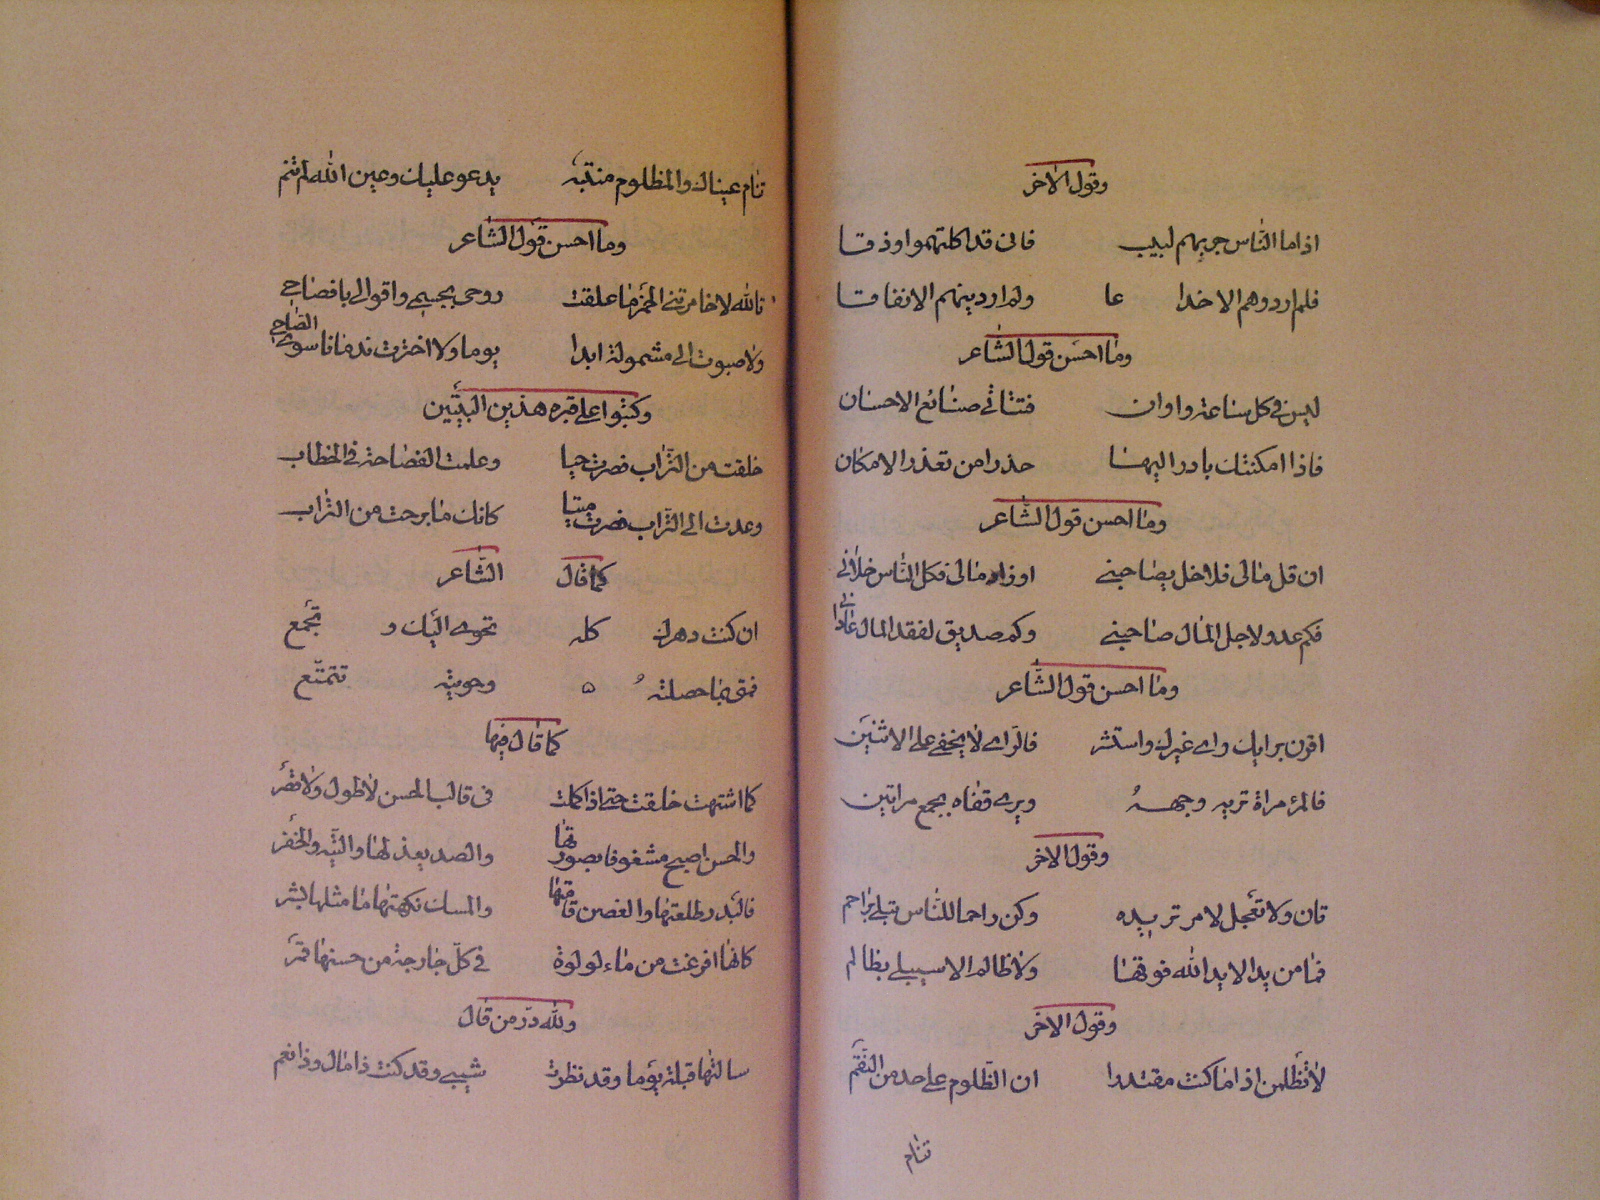 وقول الاخر
اذا ما الناس جربهم لبيب فانى قد اكلتهموا وذقا
فلم اردوهم الا خدا عا ولم ار دينهم الا نفاقا
وما احسن قول الشاعر
ليس فى كل ساعة واوان تتاتى صنائع الاحسان
فاذا امكنتك بادر اليها حذرا من تعذر الامكان
وما احسن قول الشاعر
ان قل مالى فلا خل يصاحبنى او زاد مالى فكل الناس خلانى
فكم عدو لاجل المال صاحبنى وكم صديق لفقد المال عادانى
وما احسن قول الشاعر
اقرن برايك راى غيرك واستشر فالراى لا يخفى على الاثنين
فالمرء مراة تريه وجهه ويرى قفاه بجمع مراتين
وقول الاخر
تان ولا تعجل لامر تريده وكن راحما للناس تبلى براحم
فما من يد الا يد الله فوقها ولا ظالم الا سيبلى بظالم
وقول الاخر
لا تظلمن اذا ما كنت مقتدرا ان الظلوم على حد من النقم
تنام
تنام عيناك والمظلوم منتبه يدعو عليك وعين الله لم تنم
وما احسن قول الشاعر
تالله لا خامرتنى الخمر ما علقت روحى بجسمى واقوالى بافصاحى
ولا صبوت الى مشمولة ابدا يوما ولا اخترت ندمانا سوى الصاحى
وكتبوا على قبره هذين البيتين
خلقت من التراب فصرت حيا وعلمت الفصاحة فى الخطاب
وعدت الى التراب فصرت ميتا كانك ما برحت من التراب
كما قال الشاعر
ان كنت دهرك كله تحوى اليك و تجمع
فمتى بما حصلته وحويته تتمتع
كما قال فيها
كما اشتهت خلقت حتى اذا كملت فى قالب الحسن لا طول ولا قصر
والحسن اصبح مشغوفا بصورتها والصد يعذلها والتيه والخفر
فالبدر طلعتها والغصن قامتها والمسك نكهتها ما مثلها بشر
كانها افرغت من ماء لولوة فى كل جارحة من حسنها قمر
ولله در من قال
سالتها قبلة يوما وقد نظرت شيبى وقد كنت ذا مال وذا نعم